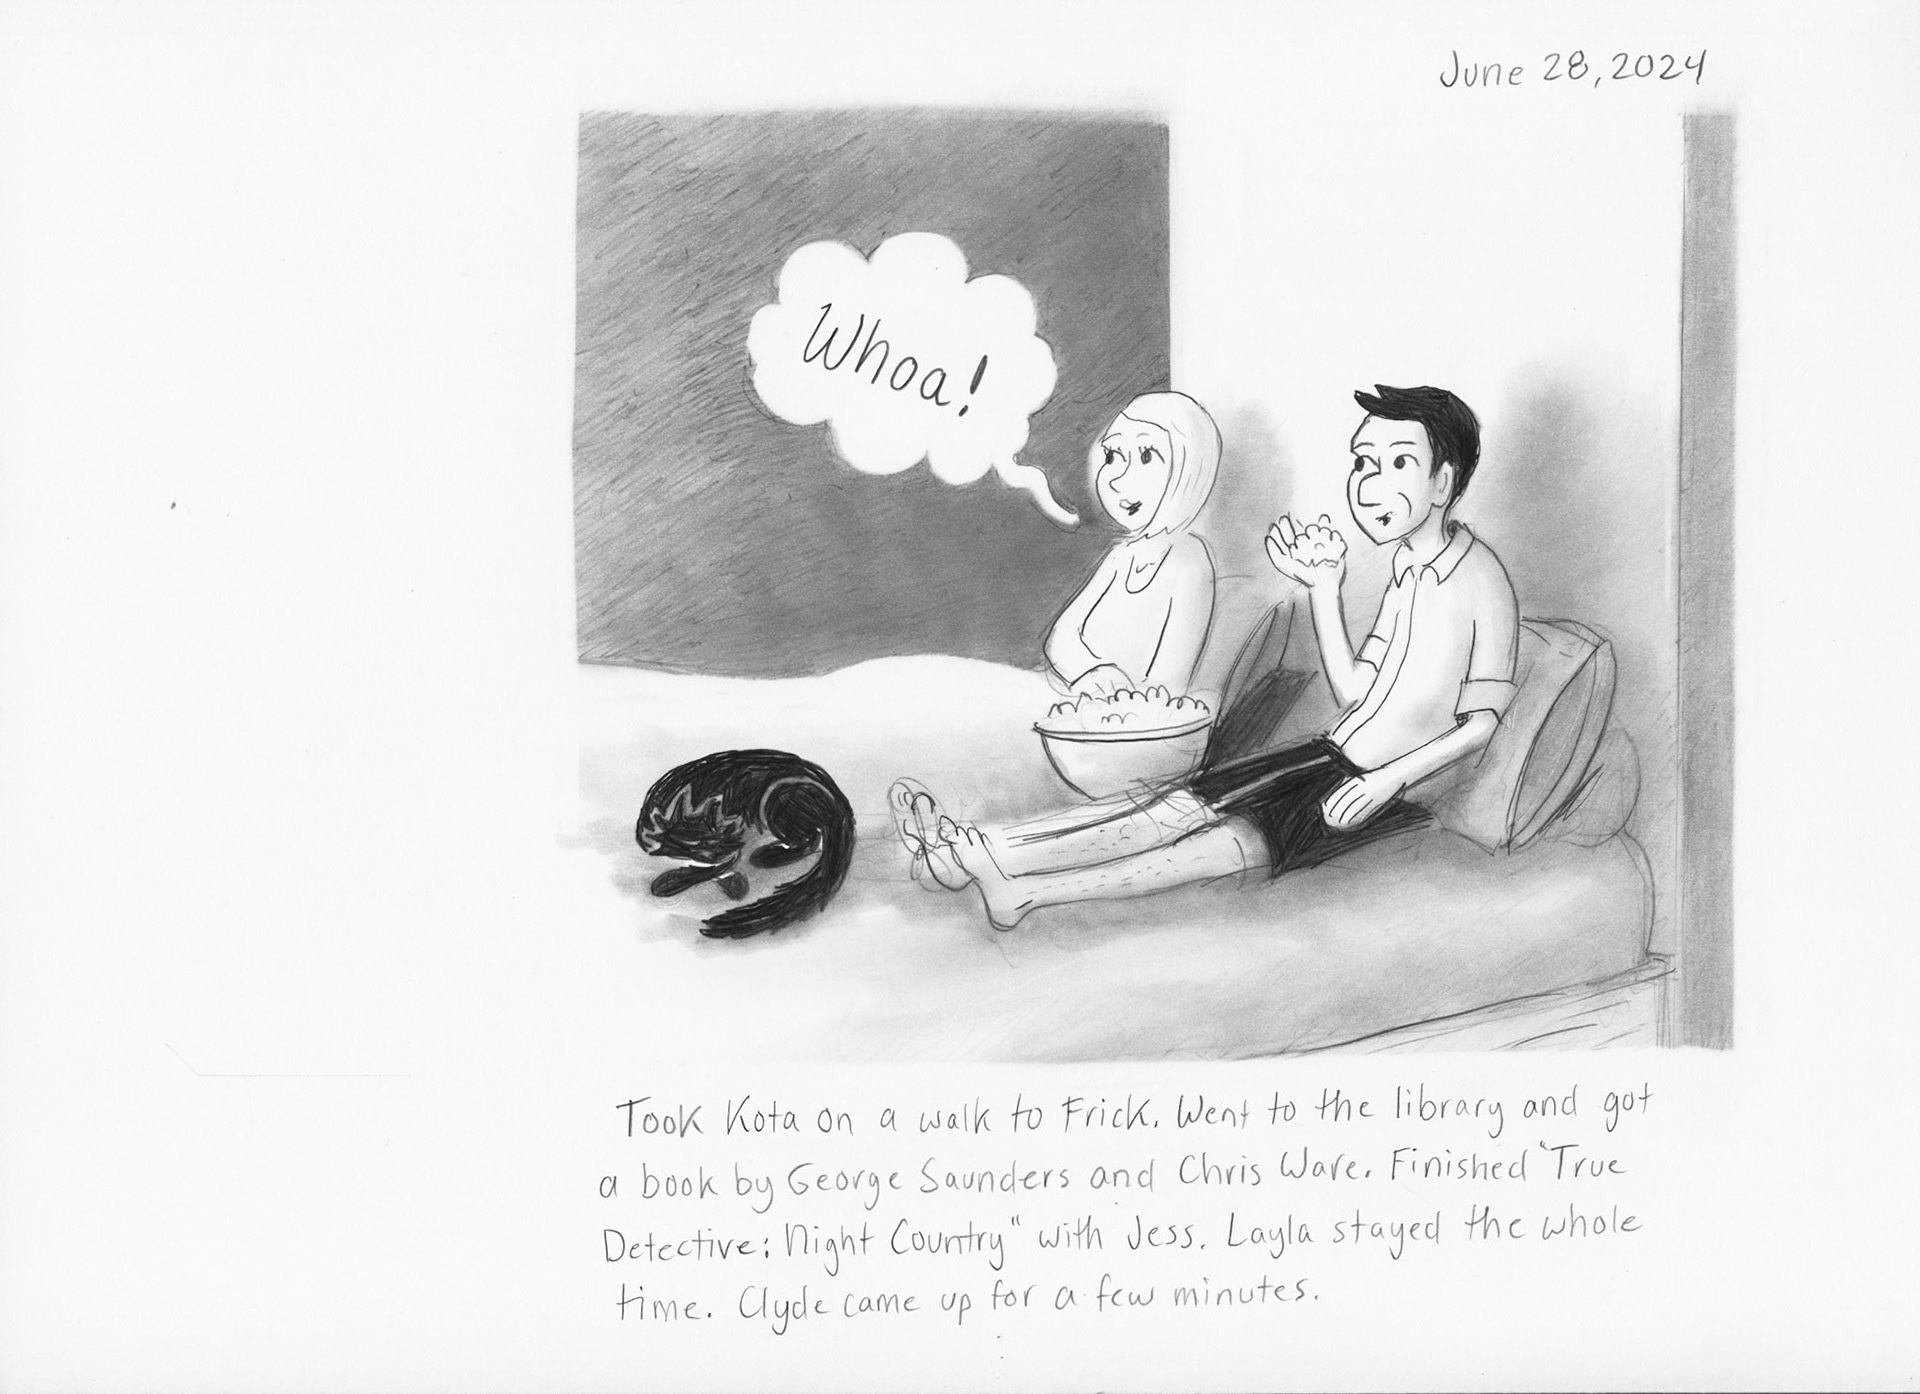 June 28, 2024
Whoa!
Took Kota on a walk to Frick. Went to the library and got
a book by George Saunders and Chris Ware. Finished "True
Detective: Night Country" with Jess. Layla stayed the whole
time. Clyde came up for a few minutes.